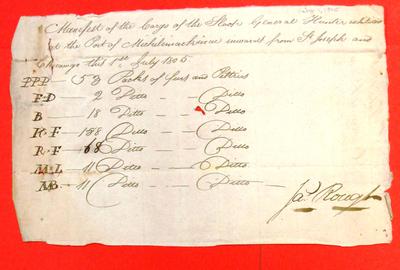 Manifest of the Cargo of the Sloop General Hunter
at the Port of Michilimackinac inwards from St. Joseph and
Chicango this 1st July 1805
PPP — 53 Packs of furs and Peltries
FD — 2 Ditto — Ditto
B — 18 Ditto — Ditto
KF — 188 Ditto — Ditto
RF — 68 Ditto — Ditto
ML — 11 Ditto — Ditto
AB — 11 Ditto — Ditto
Jas. Rough